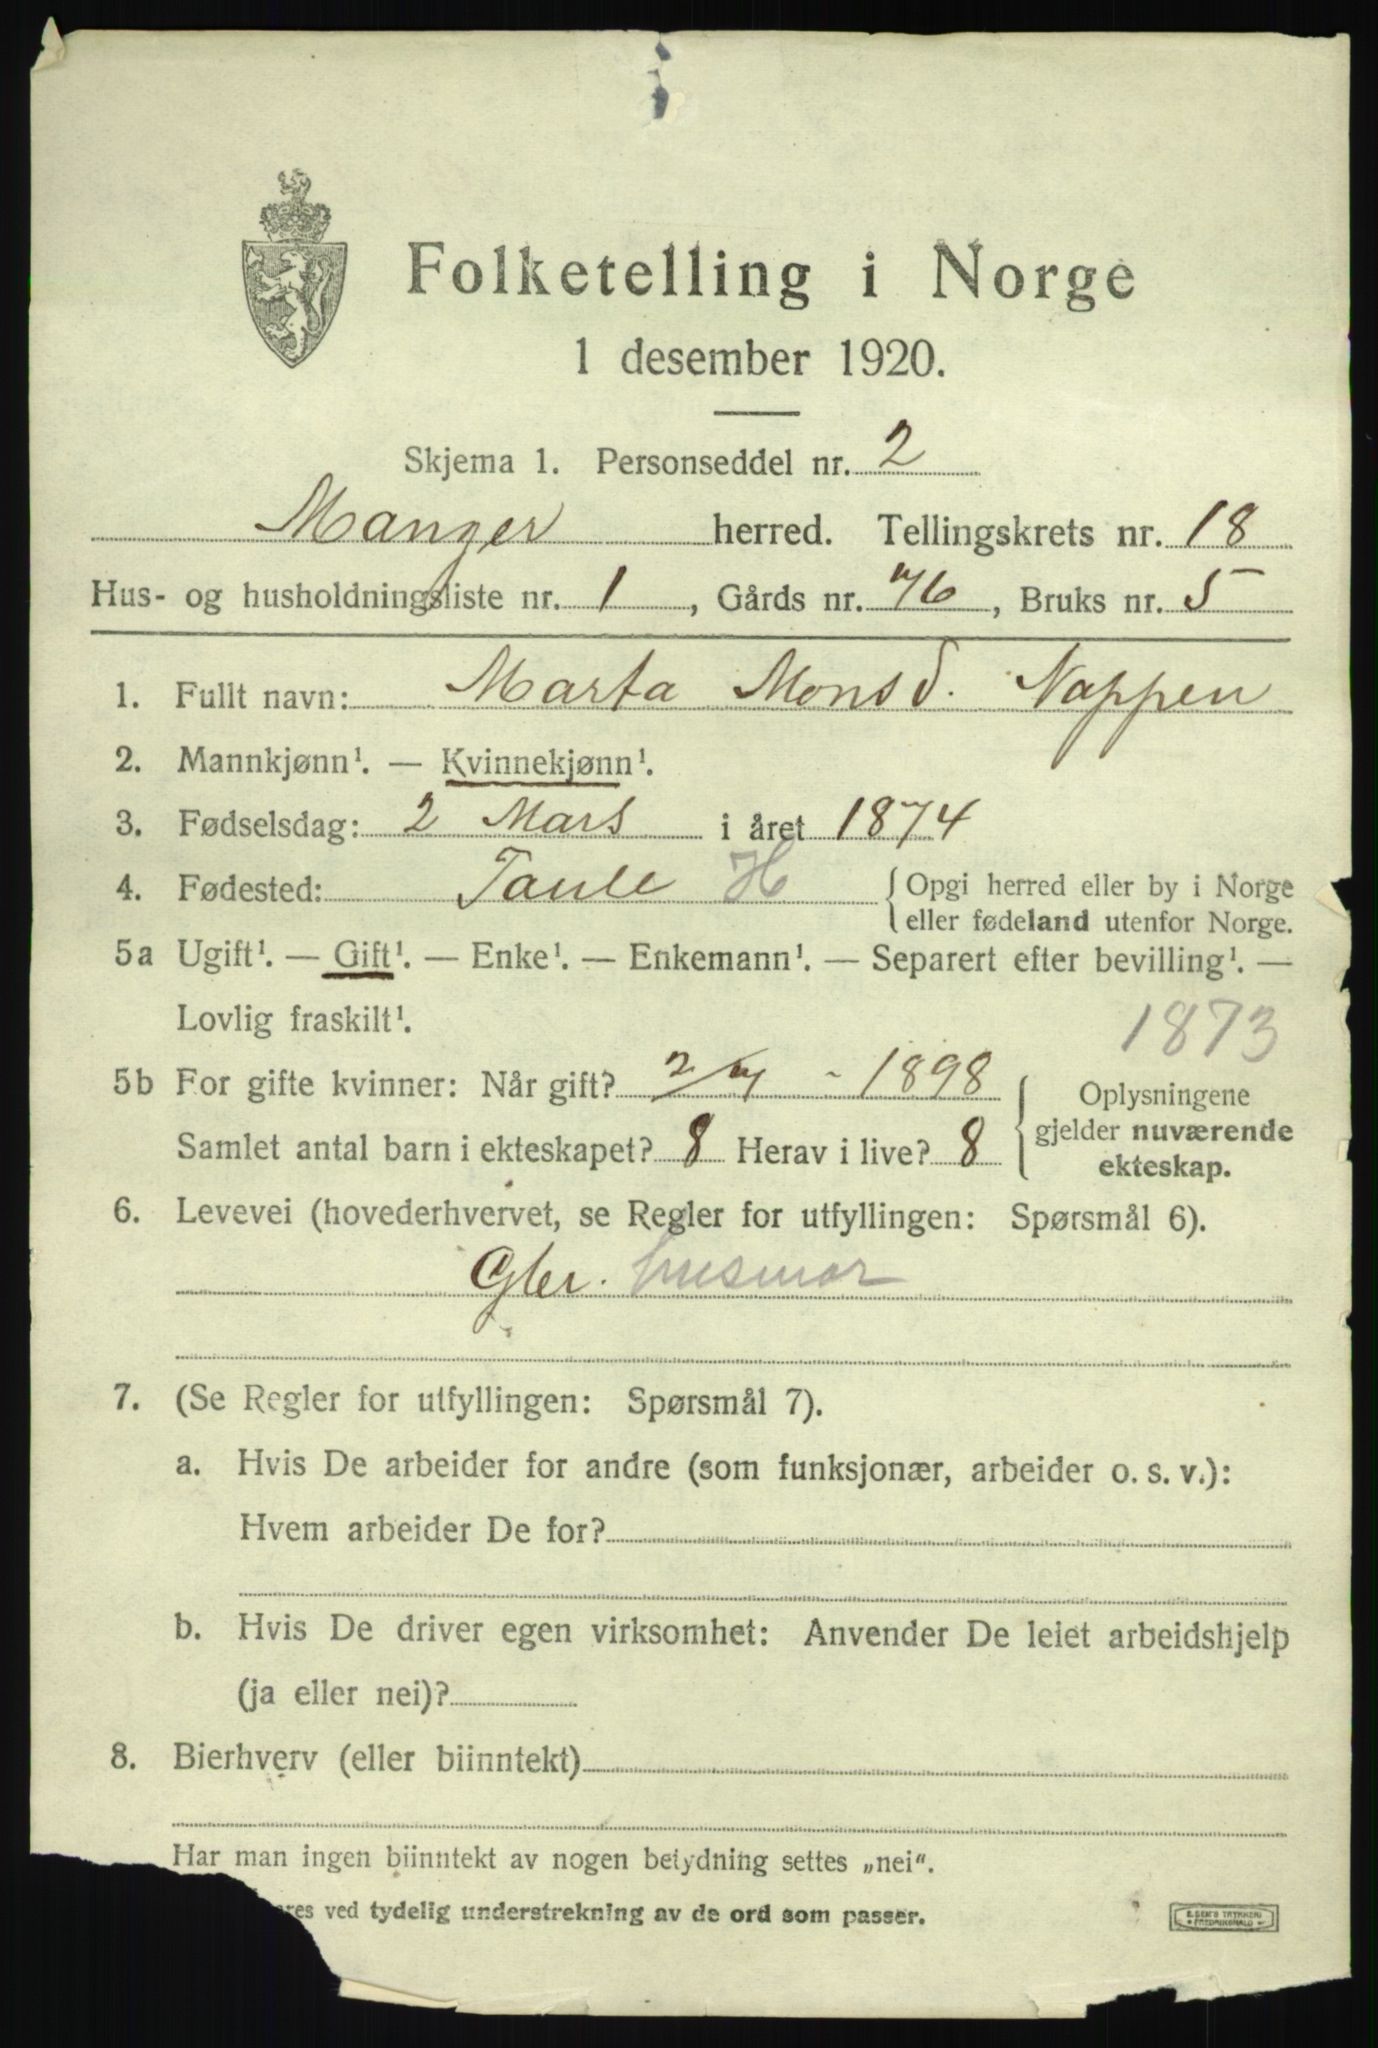 Folketelling i Norge
1 desember 1920.
Skjema 1. Personseddel nr. 2
Manger herred. Tellingskrets nr. 18
Hus- og husholdningsliste nr. 1, Gårds nr. 76, Bruks nr. 5
1. Fullt navn: Marta Monsd. Nappen
2. Mannkjønn¹. — Kvinnekjønn¹.
3. Fødselsdag: 2 Mars i året 1874
4. Fødested: Taule H {Opgi herred eller by i Norge
eller fødeland utenfor Norge.
5a Ugift¹. — Gift¹. — Enke¹. — Enkemann¹. — Separert efter bevilling¹. —
Lovlig fraskilt¹.
1873
5b For gifte kvinner: Når gift? 2/7 - 1898
Samlet antal barn i ekteskapet? 8 Herav i live? 8
{Oplysningene
gjelder nuværende
ekteskap.
6. Levevei (hovederhvervet, se Regler for utfyllingen: Spørsmål 6).
husmor
7. (Se Regler for utfyllingen: Spørsmål 7).
a. Hvis De arbeider for andre (som funksjonær, arbeider o. s. v.):
Hvem arbeider De for?
b. Hvis De driver egen virksomhet: Anvender De leiet arbeidshjelp
(ja eller nei)?
8. Bierhverv (eller biinntekt)
Har man ingen biinntekt av nogen betydning settes „nei“.
ved tydelig understrekning av de ord som passer.